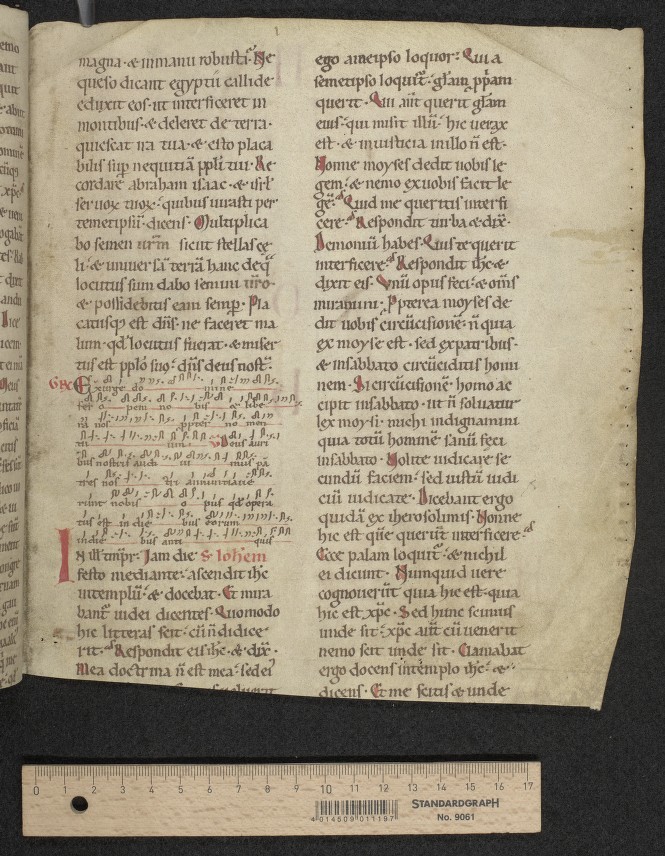 magna · & in manu robusta · Ne
queso dicant egyptii callide
eduxit eos · ut interficeret in
montibus · & deleret de terra ·
quiescat ira tua · & esto placa
bilis sup nequitiā ppli tui · Re
cordare abraham isaac · & isrl'
servoꝝ tuoꝝ · quibus iurasti per
temetipsū · dicens · Multiplica
bo semen urm̄ sicut stellas cę
li · & universā terrā hanc de q̄
locutus sum dabo semini uro ·
& possidebitis eam semp̄ · Pla
catusq; est dn̄s · ne faceret ma
lum · qd' locutus fuerat · & miser
tus est pplo suo · dn̄s deus nost̄ ·
Exurge do mine
fer o pem no bis & libe
ra nos ppter no men
tu um Deus auri
bus nostris audi vi mus pa
tres nos tri annuntiave
runt nobis o pus qd' opera
tus est in die bus eorum
in die bus anti quis
In ill' tmpr · Iam die S Iohem
festo mediante · ascendit ihc
in templū · & docebat · Et mira
bant iudei dicentes · Quomodo
hic litteras scit · cū n̄ didice
rit · Respondit eis ihc · & dix ·
Mea doctrina n̄ est mea · sed ei'
ego a meipso loquor · Qui a
semetipso loquit̄ · glam ppam
querit · Qui aut̄ querit glam
eius · qui misit illū · hic verax
est · & iniusticia in illo n̄ est ·
Nonne moyses dedit vobis le
gem · & nemo ex vobis facit le
gē · Quid me queritis interfi
cere · Respondit turba & dix ·
Demoniū habes · Quis te querit
interficere · Respondit ihc · &
dixit eis · Unū opus feci · & om̄s
miramini · Ppterea moyses de
dit vobis circūcisionē · n̄ quia
ex moyse est · sed ex patribus ·
& in sabbato circūciditis homi
nem · Si circūcisionē · homo ac
cipit in sabbato · ut n̄ solvatur
lex moysi · michi indignamini
quia totū hominē sanū feci
in sabbato · Nolite iudicare se
cundū faciem · sed iustū iudi
ciū iudicate · Dicebant ergo
quidā ex iherosolimis · Nonne
hic est quē querūt interficere ·
Ecce palam loquit̄ · & nichil
ei dicunt · Numquid vere
cognoverūt quia hic est · quia
hic est xp̄c · Sed hunc scimus
unde sit · xp̄c aut̄ cū venerit
nemo scit unde sit · Clamabat
ergo docens in templo ihc · &
dicens · Et me scitis & unde
0 1 2 3 4 5 6 7 8 9 10 11 12 13 14 15 16 17
4 014509 011197
STANDARDGRAPH
No. 9061